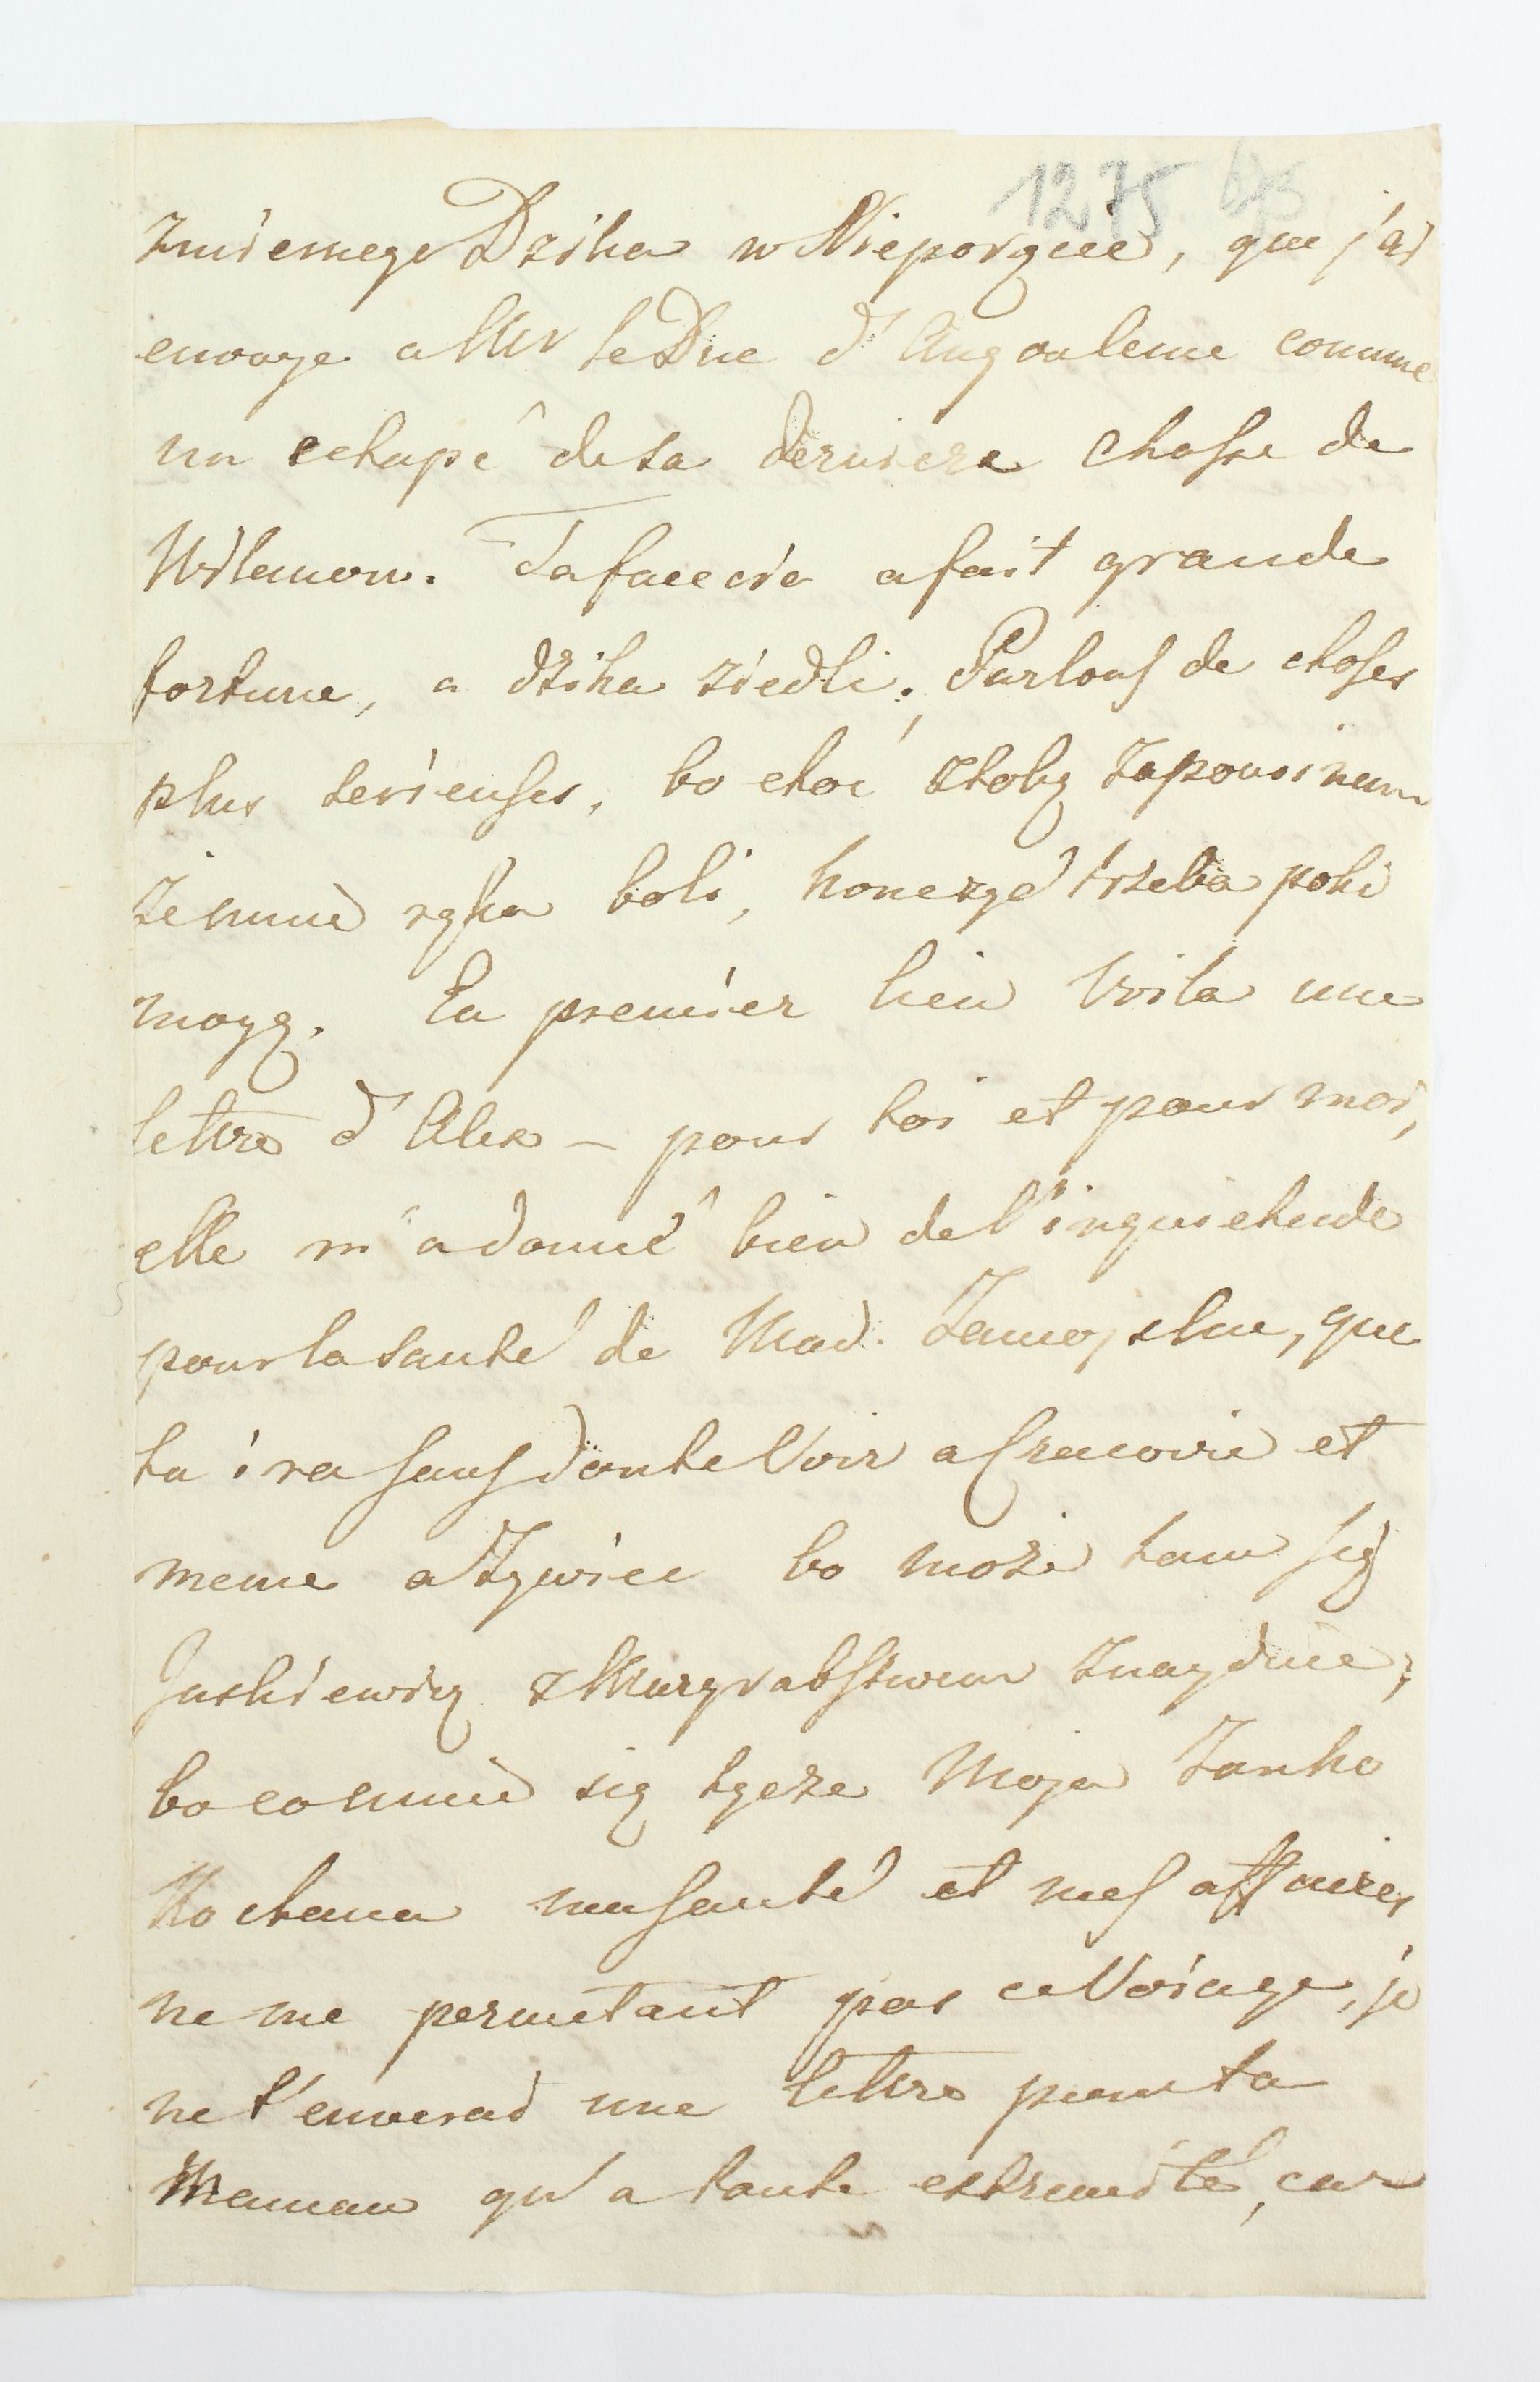 1275
zmiernego Dzika w Nieporęcie, que j'ai
envoye a Mr le Duc d'Angouleme comme
un echapé de sa derniere chasse de
Wilanow. La facecia a fait grande
fortune, a dzika ziedli; Parlons de choses
plus serieuses, bo choć z tobą zapominam
że mnie ręka boli, konczyć trzeba poki
mogę. En premier lieu voila une
lettre d'Alex – pour toi et pour moi,
elle m'a donné bien de l'inquietude
pour la santé de Mad. Zamojska, que
tu ira sans doute Voir a Cracovie et
meme a Zywiec bo może tam się
z Murgrabstwem znaydzie;
bo co mnie się tycze Moja Zonko
Kochana ma santé et mes affaires
ne me permetant pas ce Voiage, je
ne t'enverai une lettre pour ta
Maman qu'a toute extremité, car